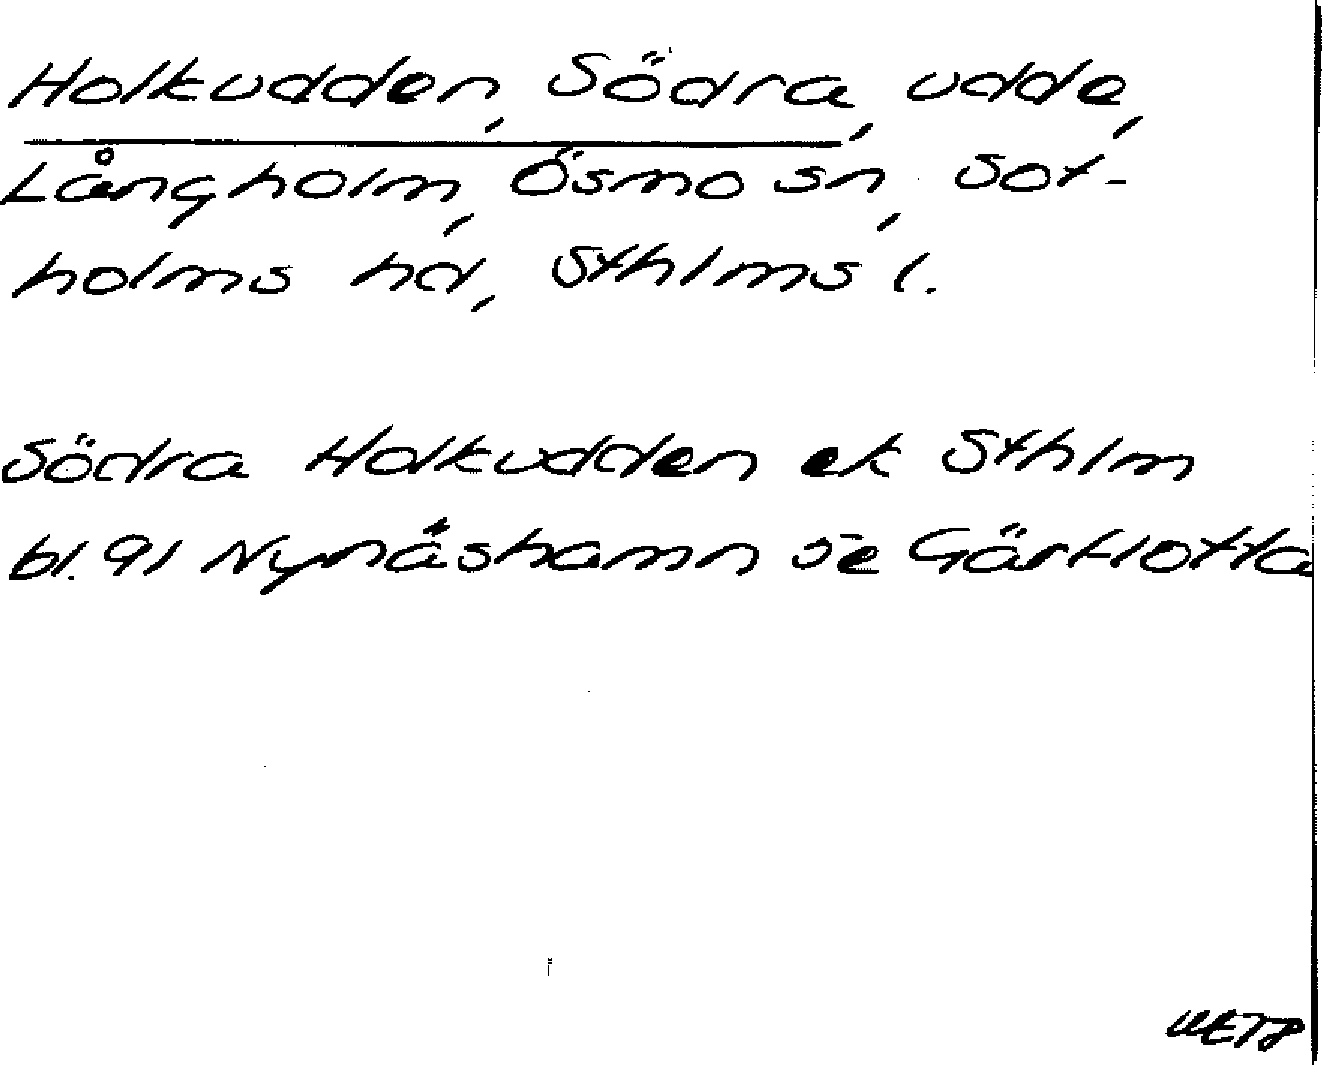 Holkudden, Södra, udde,
Långholm, Ösmo sn, Sot-
holms hd, Sthlms l.
Södra Holkudden ek Sthlm
bl. 91 Nynäshamn se Gärflotta